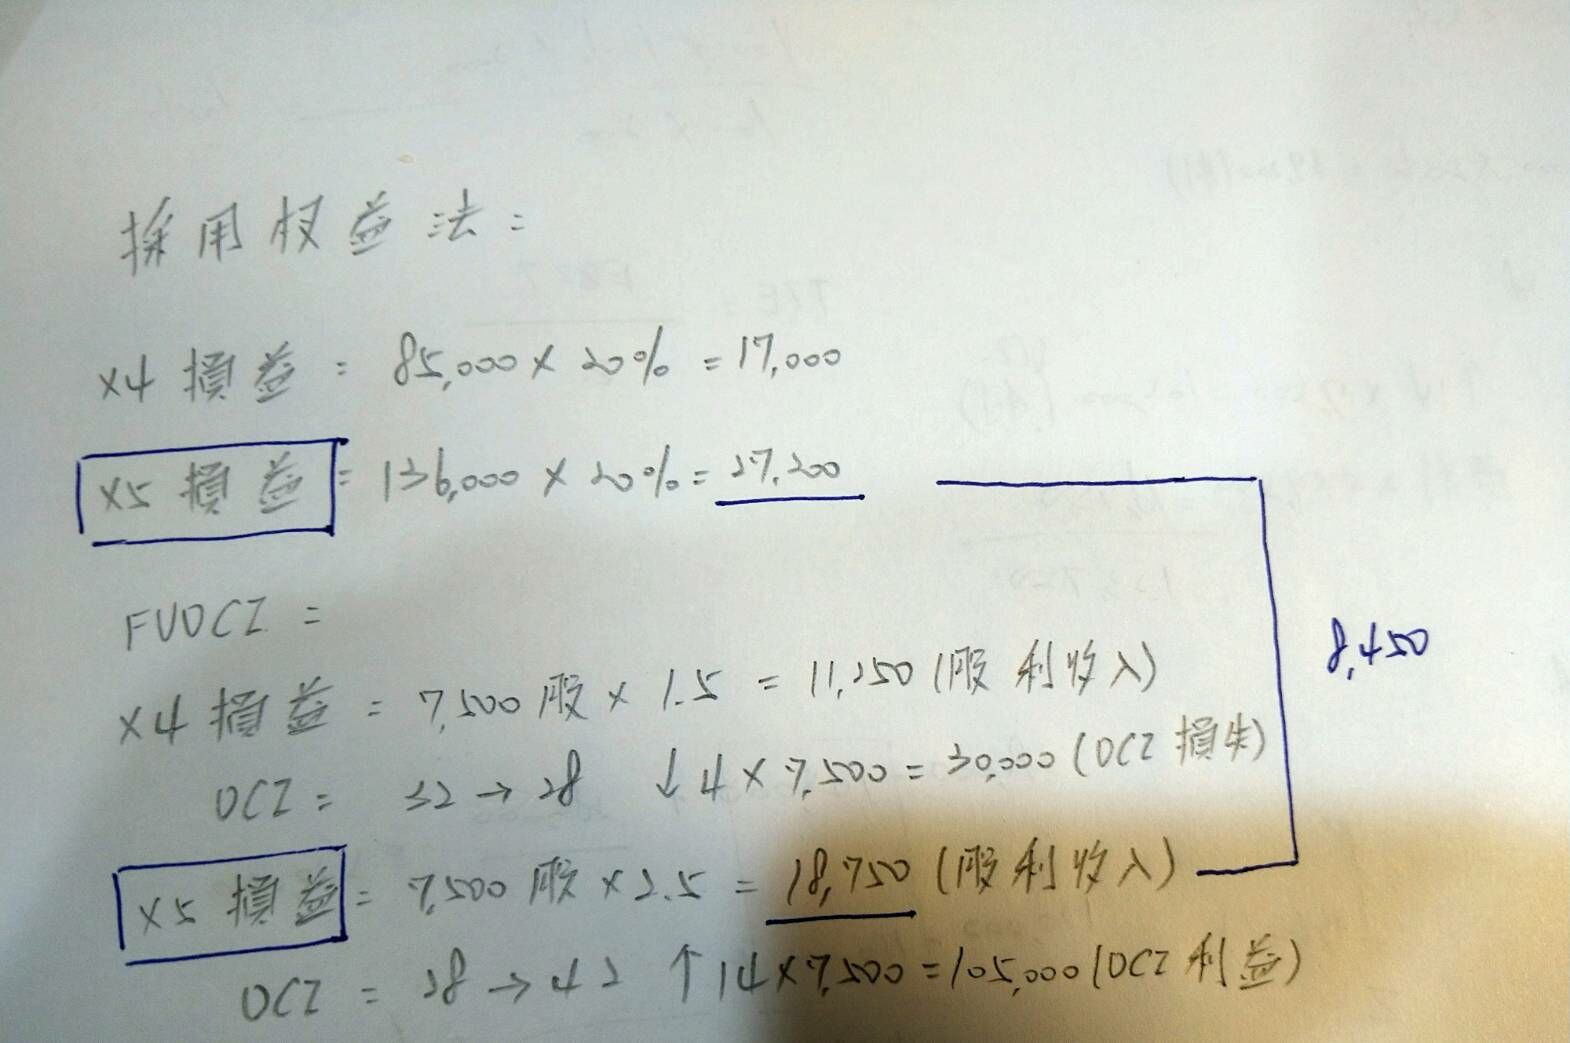 採用权益法：
X4 損益 = 85,000 × 20% = 17,000
X5 損益 = 136,000 × 20% = 27,200
FVOCI =
X4 損益 = 7,500股 × 1.5 = 11,250 (股利收入)
OCI = 32 → 28 ↓ 4 × 7,500 = 30,000 (OCI 損失)
8,450
X5 損益 = 7,500股 × 2.5 = 18,750 (股利收入)
OCI = 28 → 42 ↑ 14 × 7,500 = 105,000 (OCI 利益)